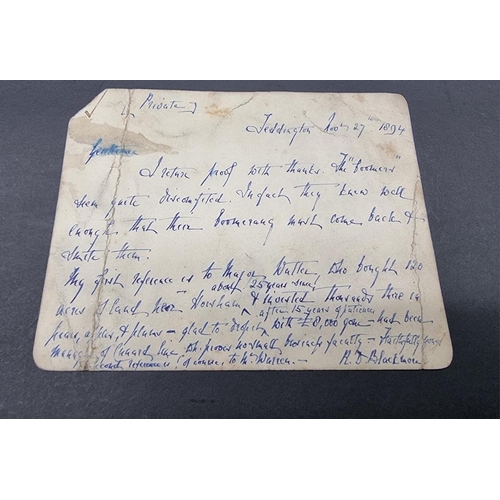 [Private]
Teddington Nov 27 1894
Gentlemen
I return proof with thanks. The "boomers"
seem quite discomfited. In fact they knew well
enough that their boomerang must come back &
smite them.
My first reference is to Major Walter, who bought 120
about 25 years since
acres of land near Horsham & invested thousands there in
after 15 years of patience
pears, & plums – glad to with £8,000 gone – had been
manager of Cunard Line, business faculty – Faithfully yours
second reference, of course, to Mr. Warren – R. D. Blackmore